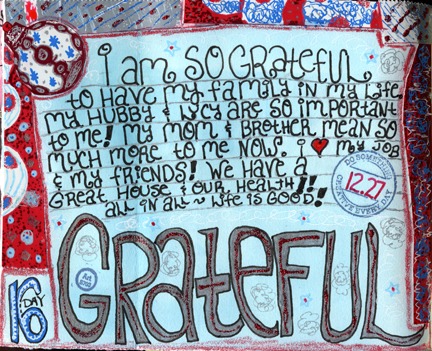 I am SO GRATEFUL
to HAVE my FAMILY IN my LIFE
my HUBB'd & Lucy ARE SO IMPORTANT
to ME! my MOM & BROTHER MEAN SO
MUCH MORE to ME NOW. i ♥ my JOB
& my FRIENDS! WE HAVE A
GREAT HOUSE & OUR HEALTH!!!
ALL IN ALL ~ LIFE IS GOOD!
DO SOMETHING
12.27
CREATIVE EVERY DAY
GRATEFUL
DAY
16
Art